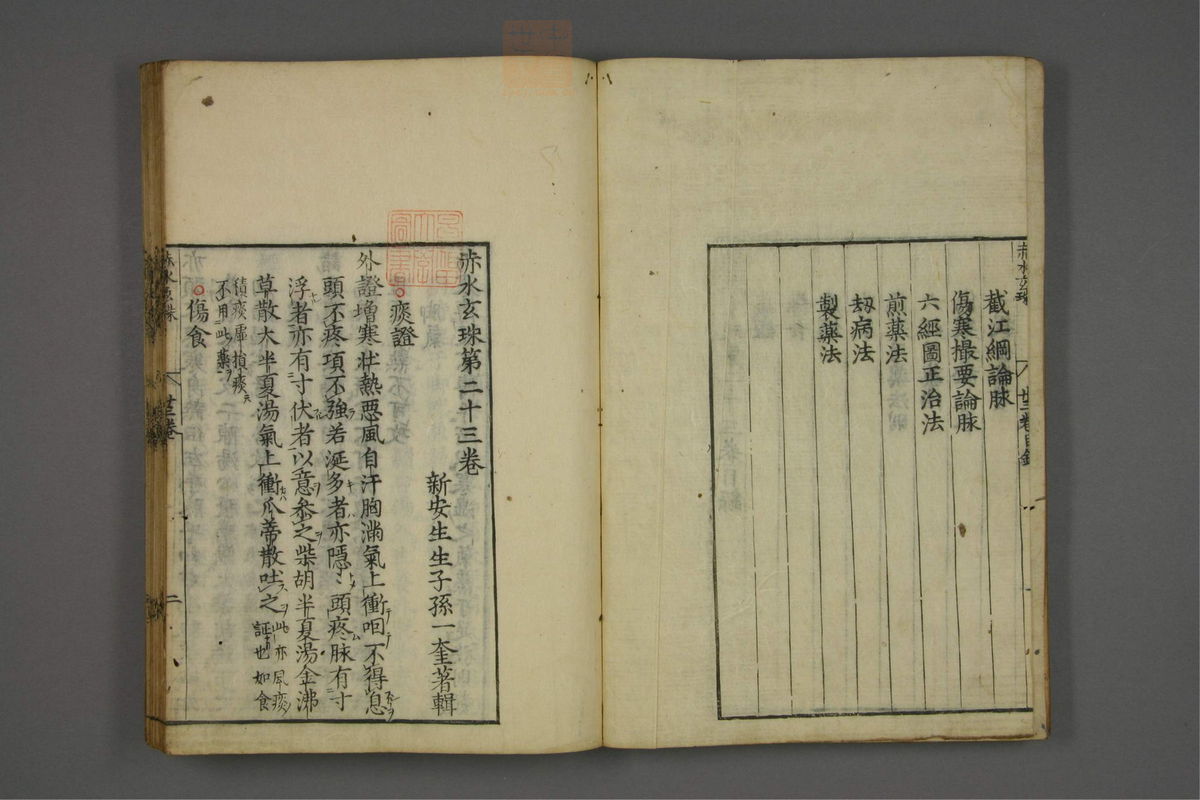 赤水玄珠
廿三卷目錄
截江綱論脉
傷寒撮要論脉
六經圖正治法
煎藥法
刼病法
製藥法
赤水玄珠第二十三卷
新安生生子孫一奎著輯
痰證
外證増寒壮熱惡風自汗胸滿氣上衝咽不得息
頭不疼項不強若涎多者亦隱〻頭疼脉有寸
浮者亦有寸伏者以意叅之柴胡半夏湯金沸
草散大半夏湯氣上衝瓜蒂散吐之此亦風痰
証也如食
積痰虛損痰
不用此藥
傷食
赤水玄珠
廿三卷
二